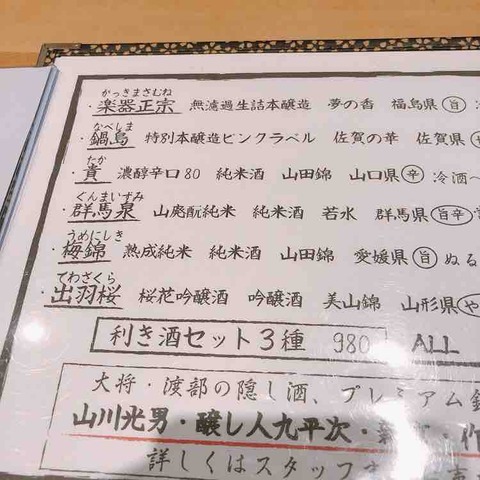 がっきまさむね
・楽器正宗 無濾過生詰本醸造 夢の香 福島県 旨
なべしま
・鍋島 特別本醸造ピンクラベル 佐賀の華 佐賀県
たか
・貴 濃醇辛口80 純米酒 山田錦 山口県 辛 冷酒〜
ぐんまいずみ
・群馬泉 山廃酛純米 純米酒 若水 群馬県 旨辛
うめにしき
・梅錦 熟成純米 純米酒 山田錦 愛媛県 旨 ぬる
でわざくら
・出羽桜 桜花吟醸酒 吟醸酒 美山錦 山形県 や
利き酒セット3種 980 ALL
大将・渡部の隠し酒、プレミアム
山川光男・醸し人九平次・
詳しくはスタッフ